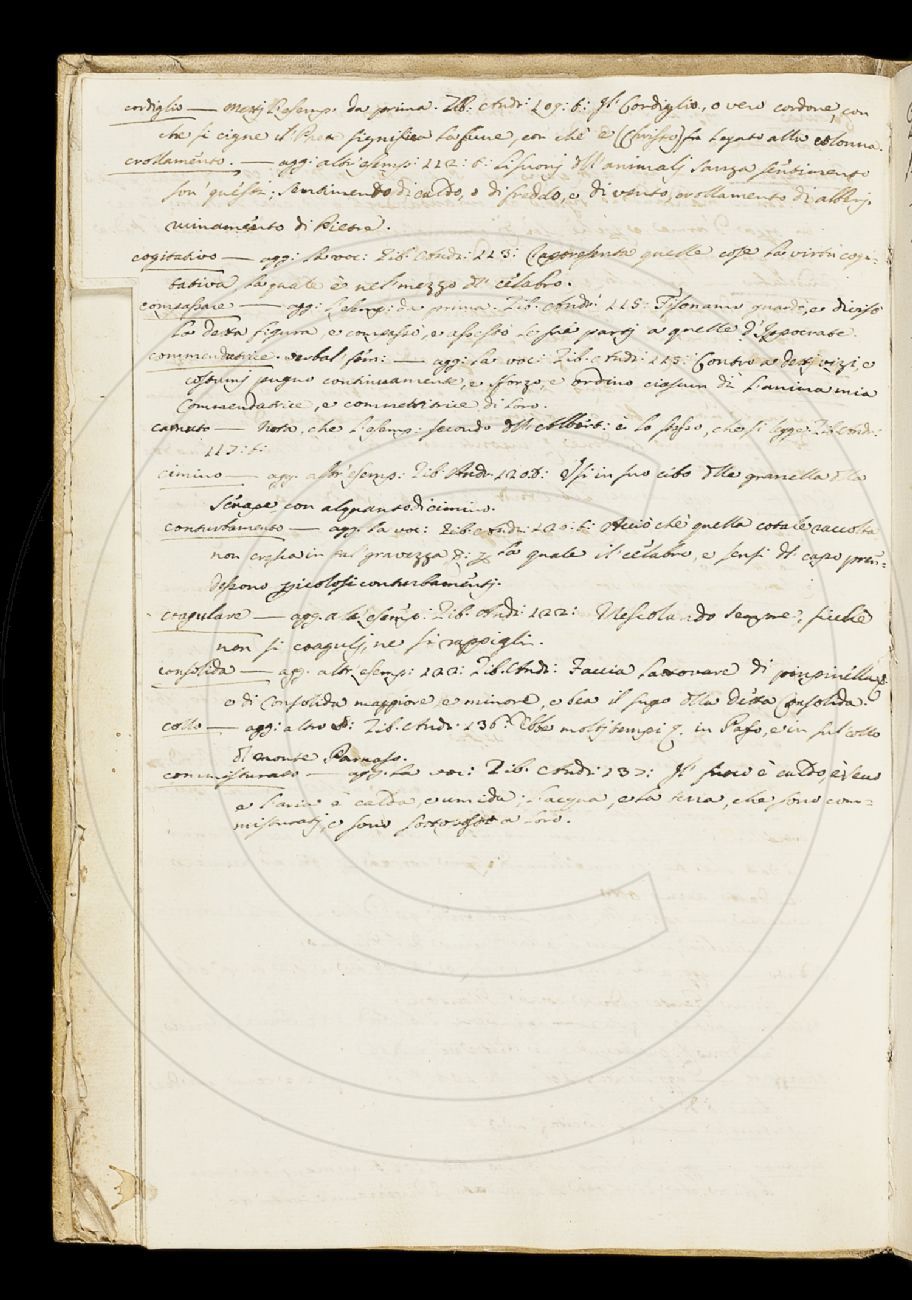 cordiglio — metti l'esemp. da prima. Zib: Andr: 109: t: Il Cordiglio, o vero cordone, con
che si cigne il significa la fune, con che è (Cristo) fu legato alla colonna.
crollamento. — agg: altr' esemp: 112: t: Lisioni dell' animali sanza sentimento
son' questi; sentimento di caldo, o di freddo, o di vento, crollamento di alberj,
ruinamento di Pietre.
cogitativo — agg: la voc: Zib: Andr: 113: Rapresenta quelle cose la virtù cogi=
tativa la quale è nel mezzo del celabro.
compassare — agg: l'esemp: da prima. Zib. Andr: 115: Fisonamo guardò, e diviso
la detta figura, e compassò, e assestò le sue partj a quelle d'Ippocrate.
commendatrice. verbal fem: — agg: la voc: Zib: Andr: 115: Contro a detj vizj, e
costumj pugno continuamente, e sforzo, e ordino ciascun dì l'anima mia
Commendatrice, e commettitrice di loro.
canuto — Nota, che l'esemp: secondo dell' Albert: è lo stesso, che si legge Zib: Andr:
117: t:
cimino — agg: altr' esemp: Zib: Andr: 120: t: Usi in suo cibo delle granella della
Senape con alquanto di cimino.
conturbamento — agg: la voc: Zib: Andr: 120: t: Acciò che quella cotale raccolta
non cresca in tal gravezza per la quale il celabro, e sensi del capo pren=
dessono pericolosi conturbamentj.
coagulare — agg: altr' esemp: Zib: Andr: 122: Mescola ndo sempre, sicchè
non si coagulj, ne si rappigli.
consolida — agg: altr' esemp: 122: Zib. Andr: Faccia lattovare di pimpinella
e di Consolida maggiore, e minore, e bea il sugo della detta Consolida.
collo — agg: altro Zib. Andr: 136. Ebbe molti tempj in Pafo, e in sul collo
di monte Parnaso.
commisturato — agg: la voc: Zib. Andr: 137: Il fuoco è caldo, è secco
e l'aria è calda, e umida; l'acqua, e la terra, che sono com=
misturatj, e sono sottoposti a loro.